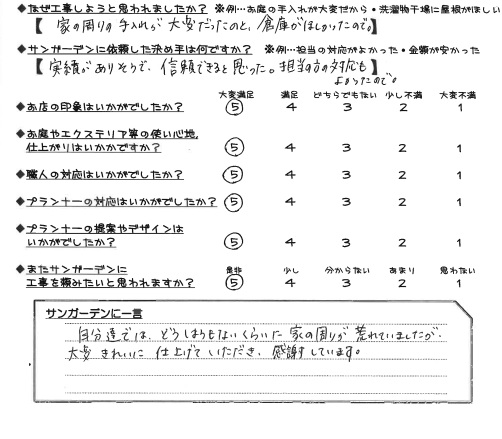 ◆なぜ工事しようと思われましたか？ ※例…お庭の手入れが大変だから・洗濯物干場に屋根がほしい
【家の周りの手入れが大変だったのと、倉庫がほしかったので。】
◆サンガーデンに依頼した決め手は何ですか？ ※例…担当の対応がよかった・金額が安かった
【実績がありそうで、信頼できると思った。担当の方の対応も
よかったので。】
大変満足 満足 どちらでもない 少し不満 大変不満
◆お店の印象はいかがでしたか？ 5 4 3 2 1
◆お庭やエクステリア等の使い心地、
仕上がりはいかかですか？ 5 4 3 2 1
◆職人の対応はいかがでしたか？ 5 4 3 2 1
◆プランナーの対応はいかがでしたか？ 5 4 3 2 1
◆プランナーの提案やデザインは
いかがでしたか？ 5 4 3 2 1
是非 少し 分からない あまり 思わない
◆またサンガーデンに
工事を頼みたいと思われますか？ 5 4 3 2 1
サンガーデンに一言
自分達では、どうしようもないくらいに家の周りが荒れていましたが、
大変きれいに仕上げていただき、感謝しています。